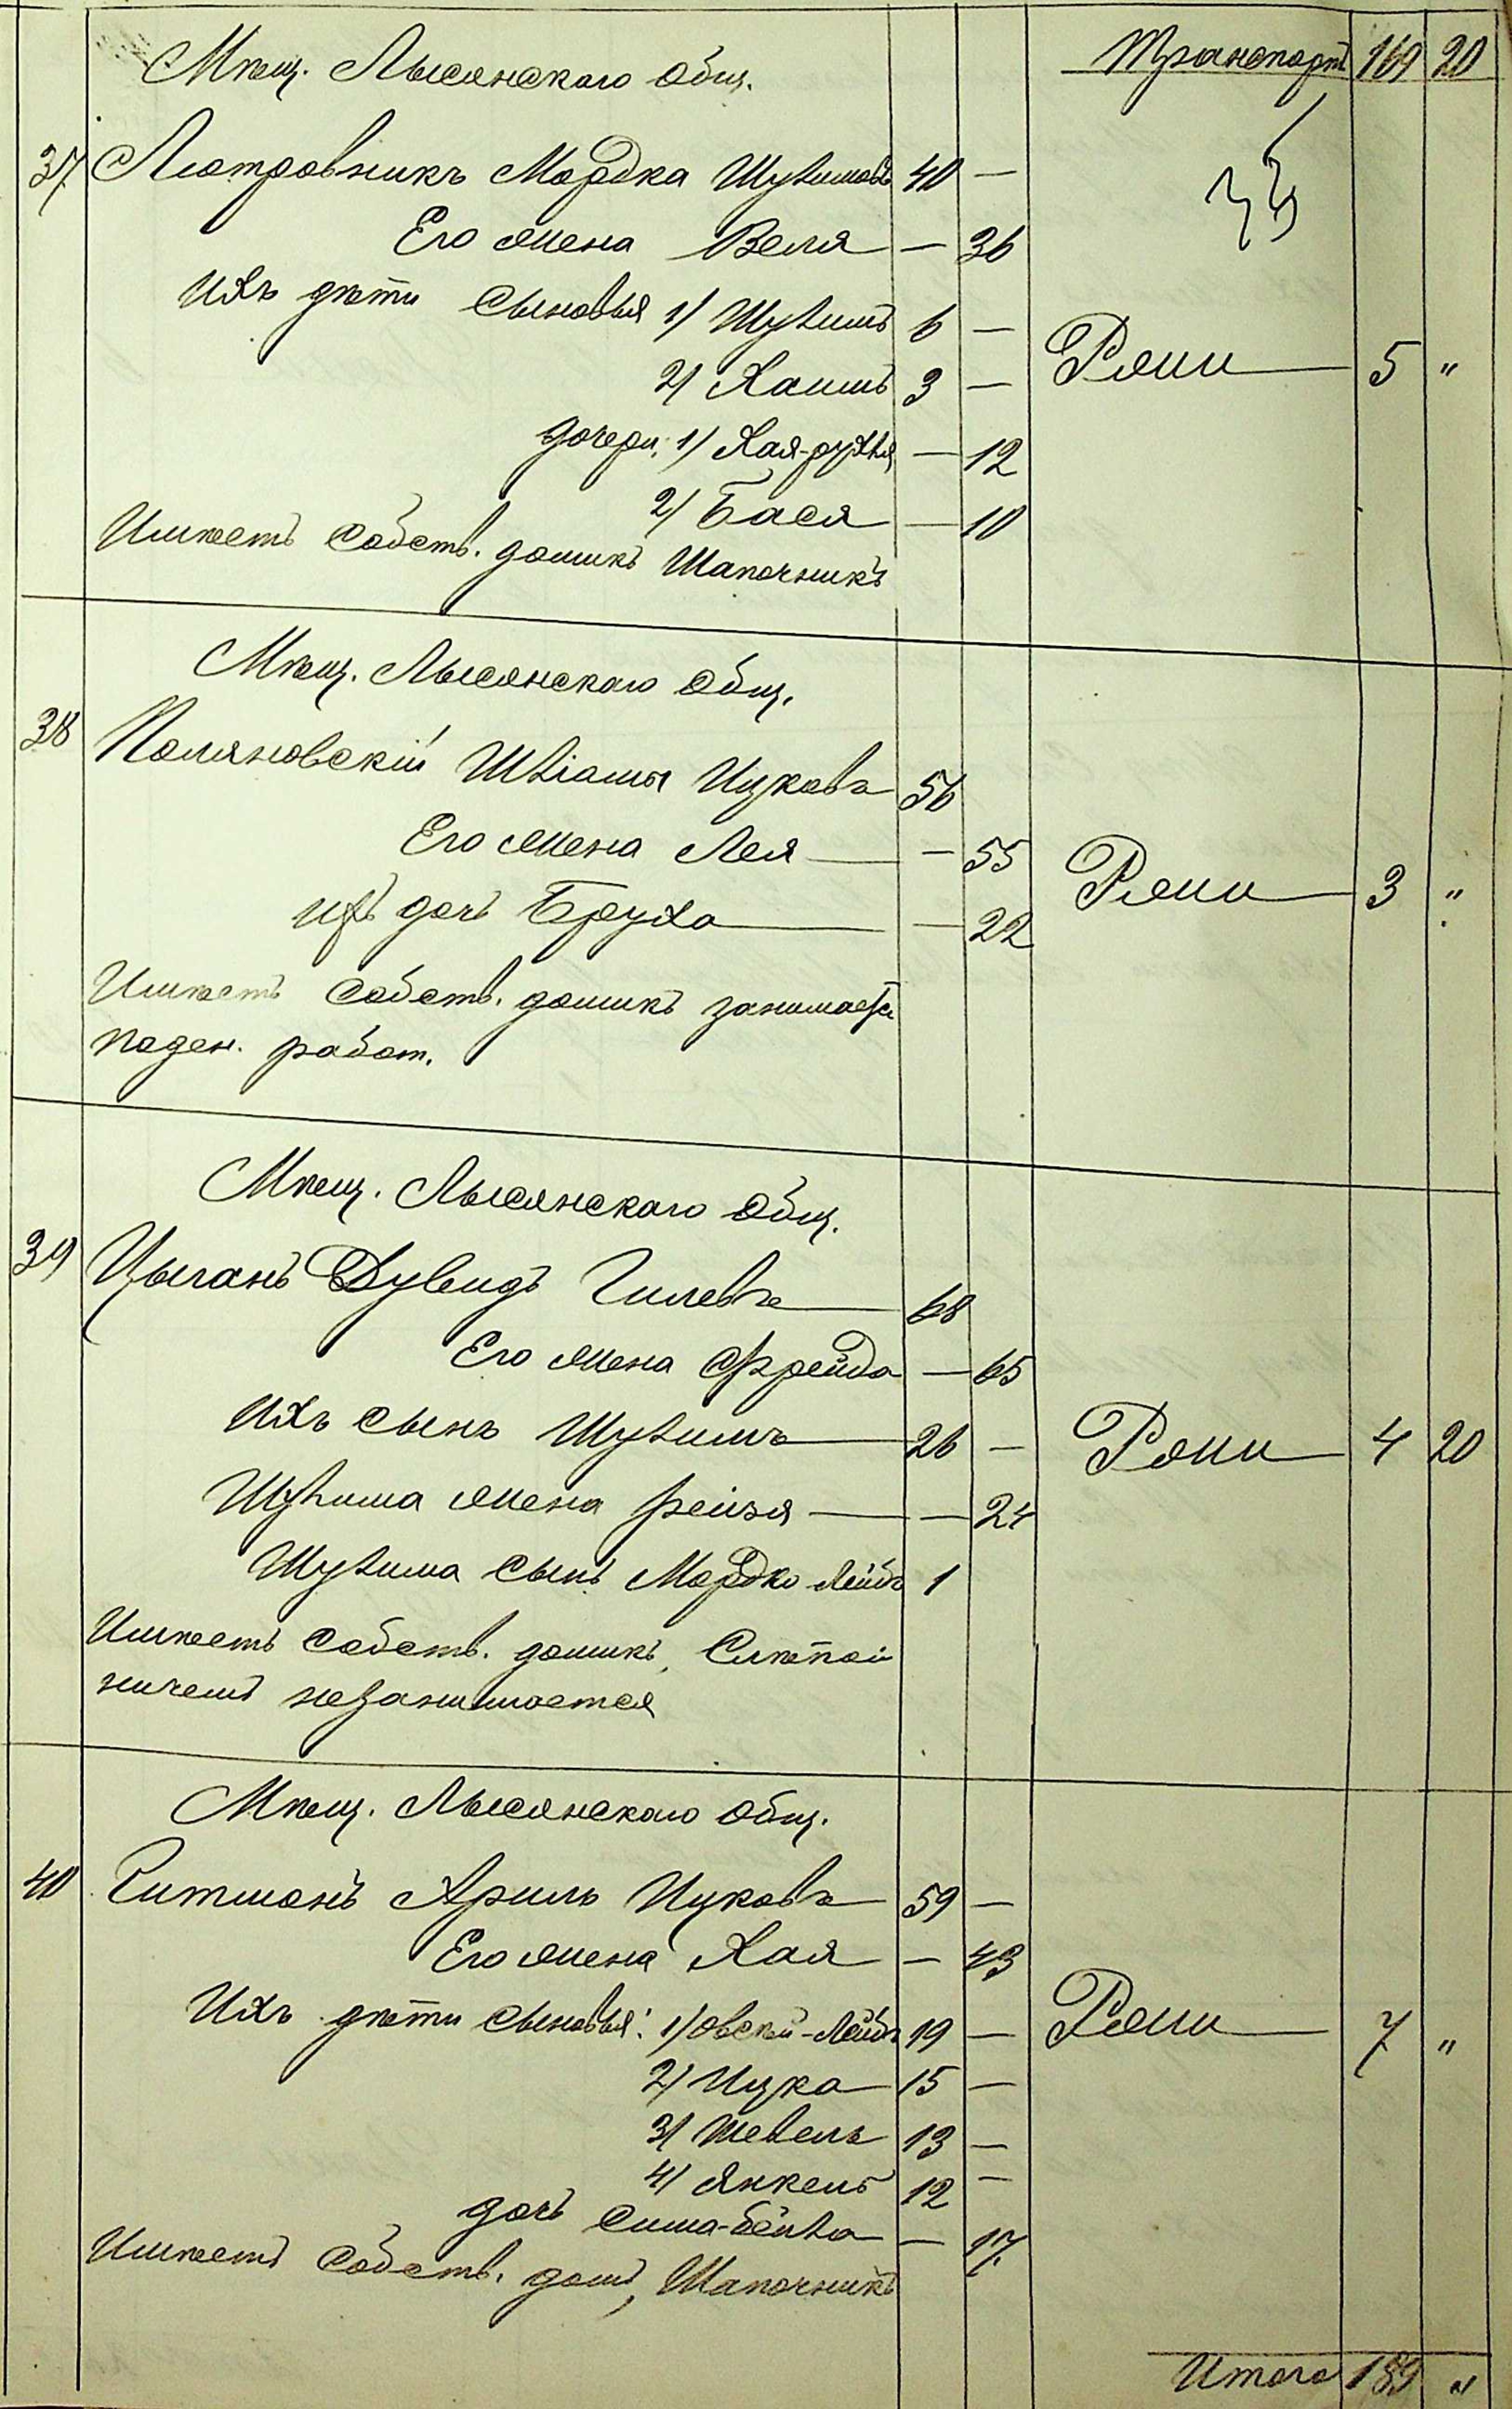 Мѣщ. Лысянскаго общ.
Транспортъ 169 20
37 Лютровникъ Мордка Шулимовъ 40 —
Его жена Веля — 36
Ихъ дѣти сыновья 1) Шулимъ 6 —
2) Хаимъ 3 —
Ржи 5 "
дочери: 1) Хая-рухля — 12
2) Бася — 10
Имѣетъ собств. домикъ Шапочникъ
Мѣщ. Лысянскаго общ.
38 Поляновскій Шліомы Ицковъ 56
Его жена Лея — 55
Ржи 3 "
ихъ дочь Бруха — 22
Имѣетъ собств. домикъ занимается
поден. работ.
Мѣщ. Лысянскаго общ.
39 Цыганъ Дувидъ Гилевъ 68
Его жена Фрейда — 65
Ихъ сынъ Шулимъ 26 —
Ржи 4 20
Шулима жена рейзя — 24
Шулима сынъ Мордко Лейбъ 1
Имѣетъ собств. домикъ, Слѣпой
ничемъ незанимается
Мѣщ. Лысянскаго общ.
40 Гитманъ Ариль Ицковъ 59 —
Его жена Хая — 43
Ихъ дѣти сыновья: 1) Овсѣй-Лейбъ 19 —
Ржи 7 "
2) Ицко 15 —
3) Шевель 13 —
4) Янкель 12 —
дочь Сима-бейла — 17
Имѣетъ собств. домъ, Шапочникъ
Итого 189 "